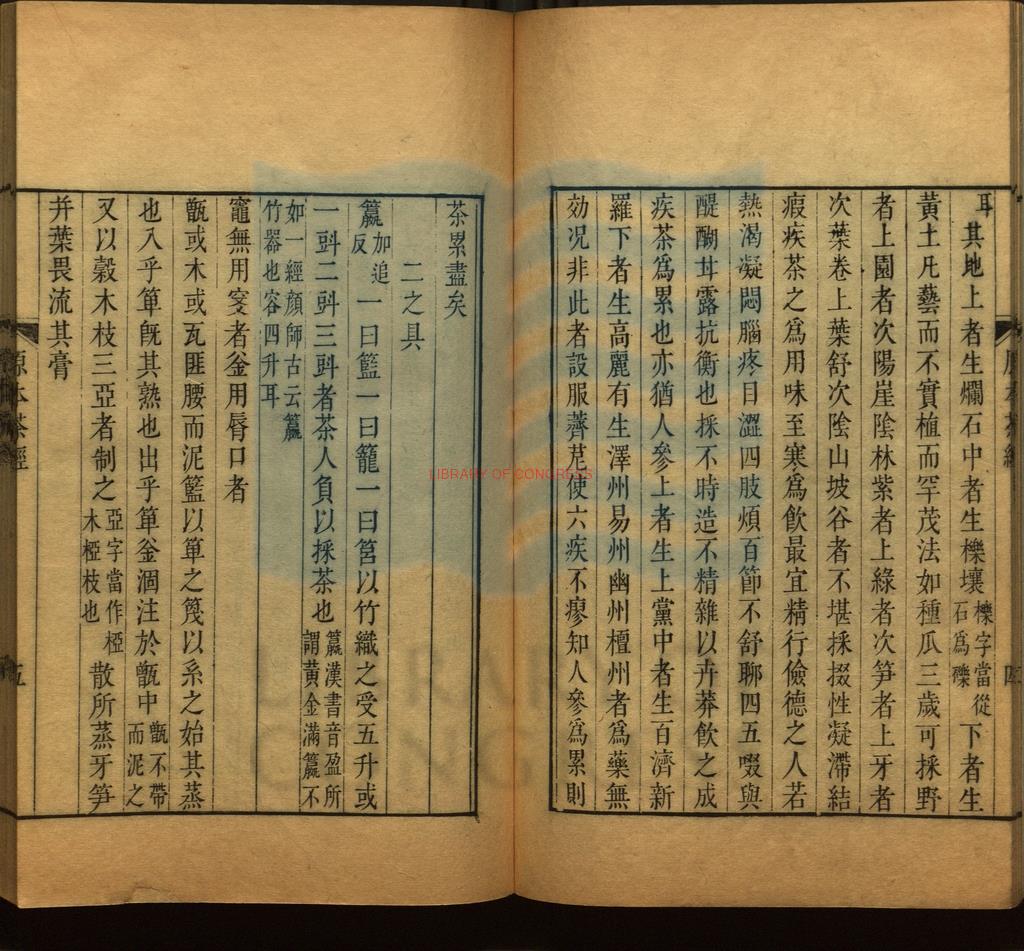 耳其地上者生爛石中者生櫟壤櫟字當從石爲礫下者生
黃土凡藝而不實植而罕茂法如種瓜三歲可採野
者上園者次陽崖陰林紫者上綠者次笋者上牙者
次葉卷上葉舒次陰山坡谷者不堪採掇性凝滯結
瘕疾茶之爲用味至寒爲飲最宜精行儉德之人若
熱渴凝悶腦疼目澀四肢煩百節不舒聊四五啜與
醍醐甘露抗衡也採不時造不精雜以卉莽飲之成
疾茶爲累也亦猶人參上者生上黨中者生百濟新
羅下者生高麗有生澤州易州幽州檀州者爲藥無
効况非此者設服薺苨使六疾不瘳知人參爲累則
茶累盡矣
二之具
籯加追反一曰籃一曰籠一曰筥以竹織之受五升或
一㪷二㪷三㪷者茶人負以採茶也籯漢書音盈所謂黃金滿籯不
如一經顏師古云籯竹器也容四升耳
竈無用窔者釜用脣口者
甑或木或瓦匪腰而泥籃以箄之篾以系之始其蒸
也入乎箄旣其熟也出乎箄釜涸注於甑中甑不帶而泥之
又以榖木枝三亞者制之亞字當作椏木椏枝也散所蒸牙笋
并葉畏流其膏
原本茶經
五
LIBRARY OF CONGRESS